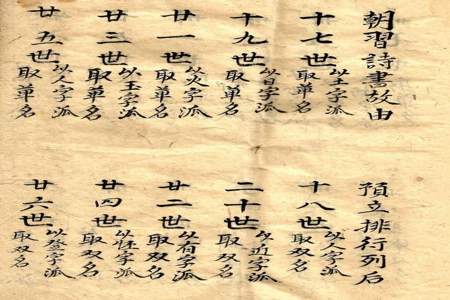 朝習詩書故由
預立排行列后
十七世
以土字派
取單名
十八世
以人字派
取双名
十九世
以日字派
取單名
二十世
以近字派
取双名
廿一世
以火字派
取單名
廿二世
以有字派
取双名
廿三世
以玉字派
取單名
廿四世
以字派
取双名
廿五世
以人字派
取單名
廿六世
以登字派
取双名